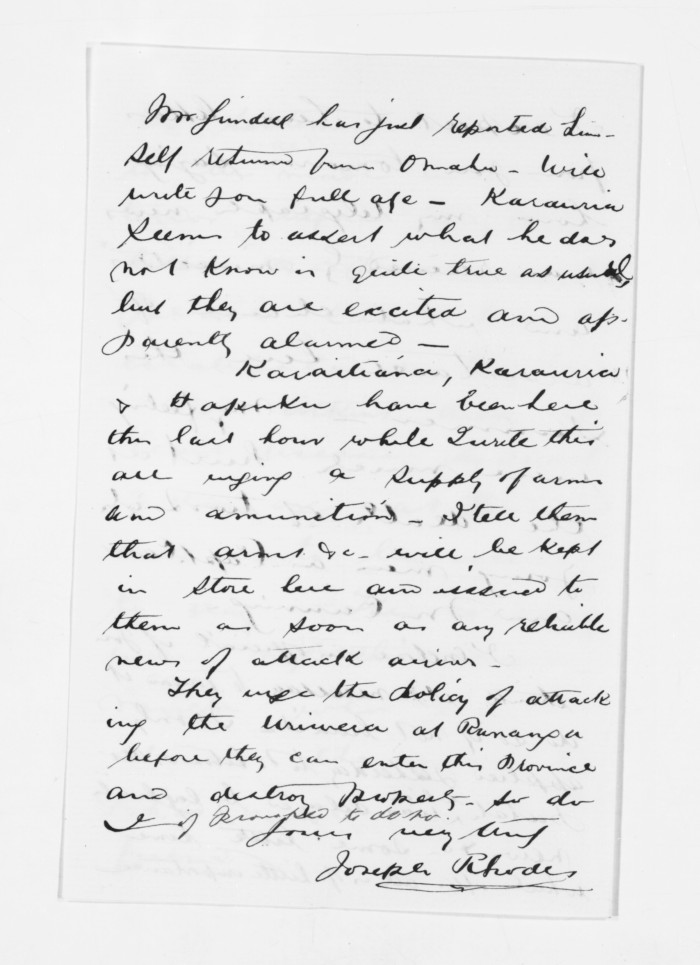 Mr Grindell has just reported him-
self returned from Omahu - Will
write you full afe - Karauria
seems to assert what he does
not know is quite true as usual,
but they are excited and ap-
parently alarmed -
Karaitiana, Karauria
& Hapuku have been here
this last hour while I write this
all urging a supply of arms
and amunition - I tell them
that arms &c - will be kept
in store here and issued to
them as soon as any reliable
news of attack arrives -
They urge the policy of attack
ing the Uriwera at Runanga
before they can enter this Province
and destroy property. So do
I if provoked to do so.
Yours very truly
Joseph Rhodes